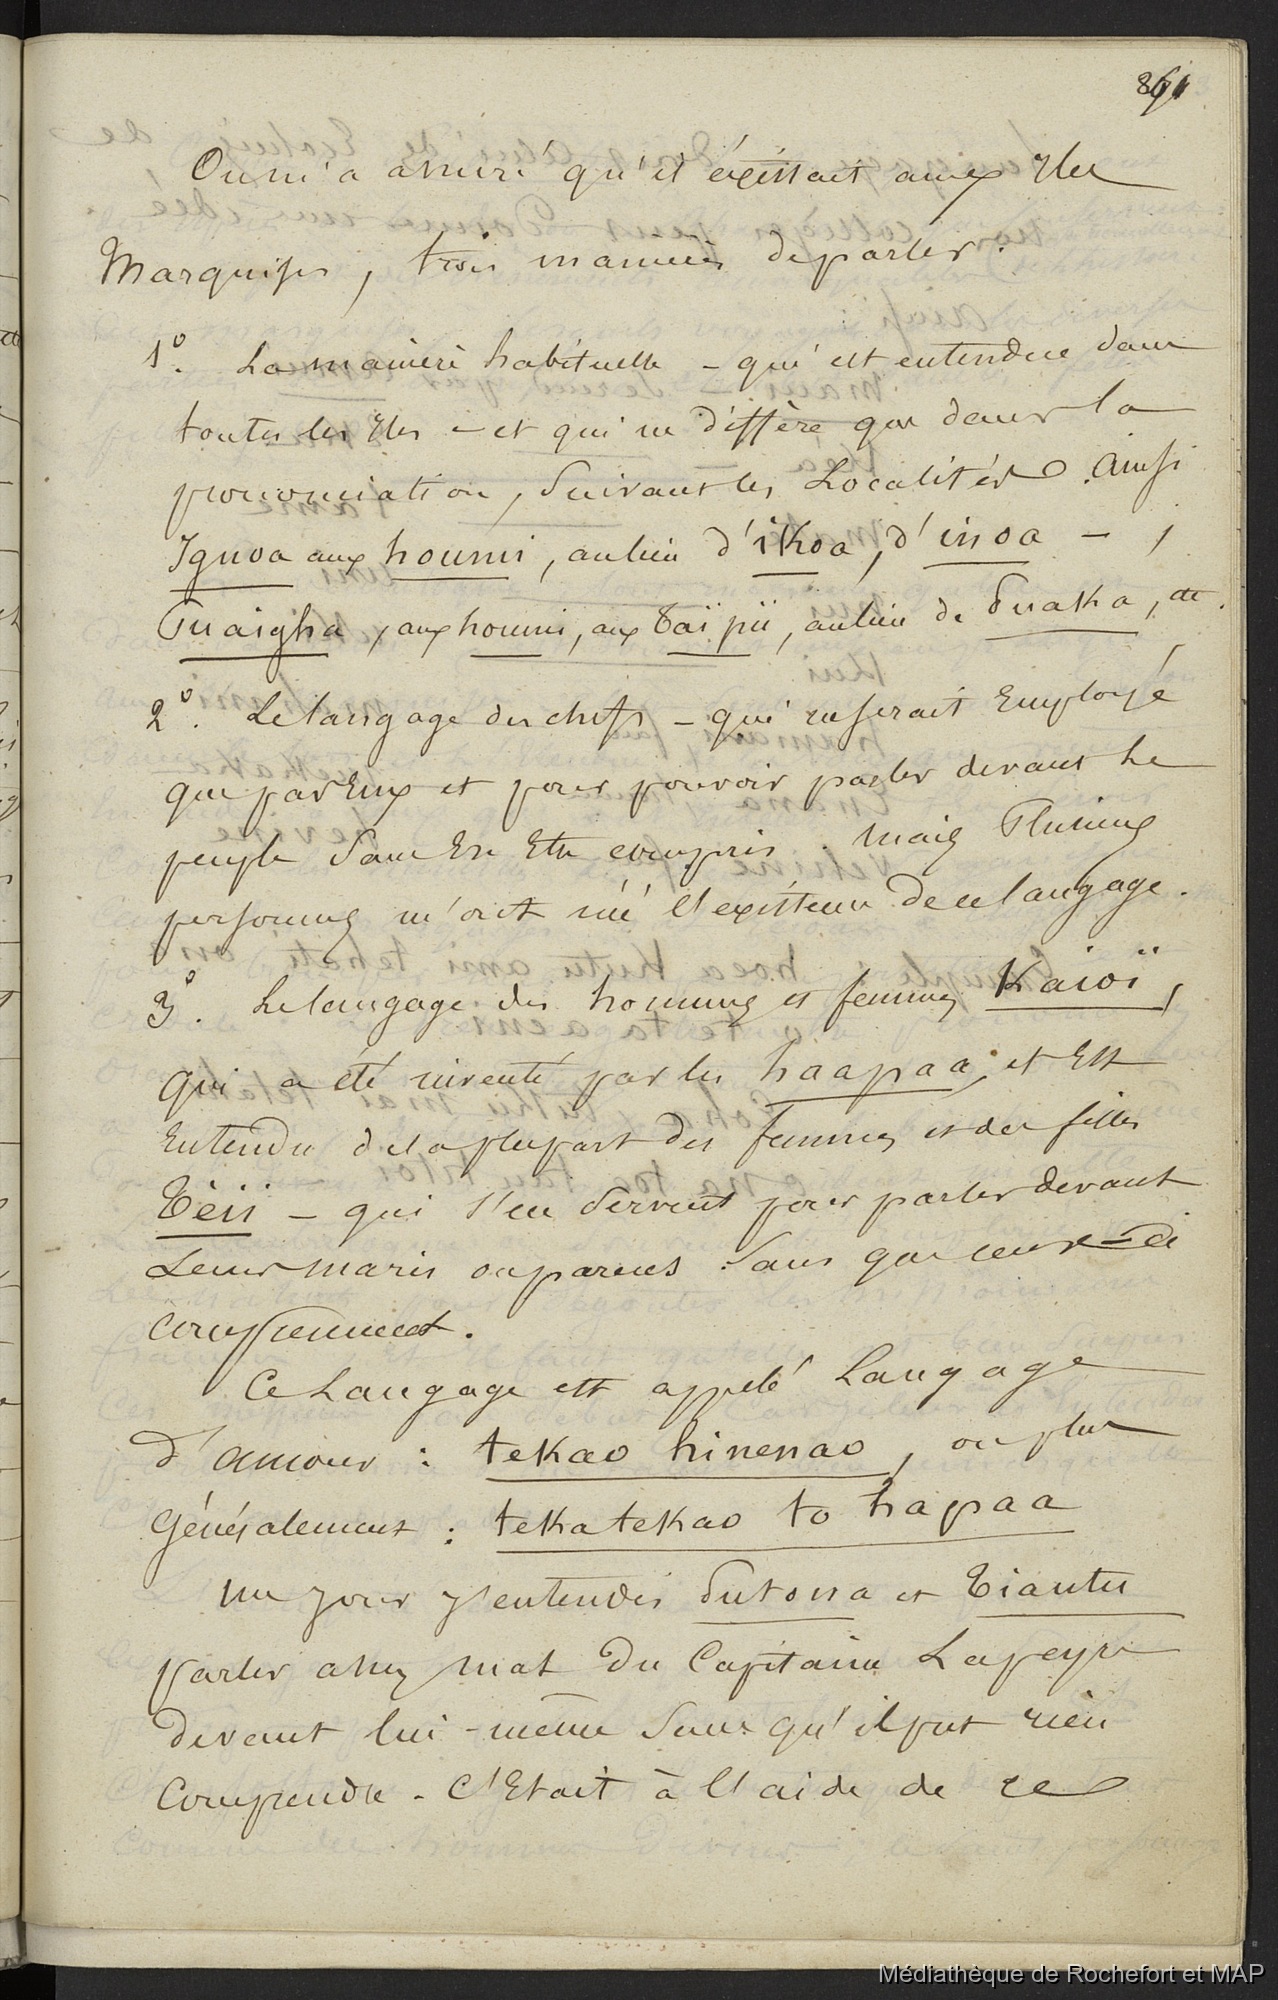 861
On m'a assuré qu'il éxistait aux Iles
Marquises, trois manières de parler.
1°. La manière habituelle - qui est entendue dans
toutes les Iles - et qui ne diffère que dans la
prononciation, suivant les Localités. Ainsi
Ignoa aux houmi, au lieu d'ikoa, d'inoa - ,
Puaigha, aux houmi, aux Taïpii, au lieu de Puaka, etc.
2°. Le langage des chefs - qui ne serait Employé
que par Eux et pour pouvoir parler devant le
peuple sans En Etre compris. Mais Plusieurs
personnes m'ont nié l'existence de ce langage.
3°. Le langage des hommes et femmes Kaioï,
qui a été inventé par les haapaa, et Est
Entendu de la plupart des femmes et des filles
Teii - qui s'en servent pour parler devant
Leurs maris ou parents sans que ceux-ci
comprennent.
Ce Langage est appelé Langage
d'amour : tekao hinenao, ou plus
Généralement : tekatekao to hapaa
Un jour j'entendis Putona et Tiautu
parler assez mal du Capitaine Lapeyre
devant lui-même sans qu'il put rien
Comprendre - C'Etait à l'aide de ce
Médiathèque de Rochefort et MAP